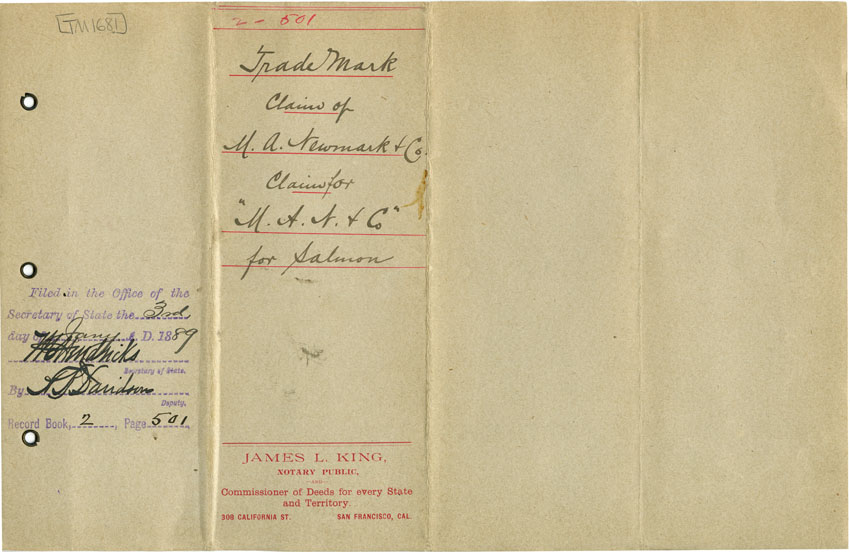 [TM1681]
2 - 501
Trade Mark
Claim of
M. A. Newmark & Co.
Claim for
"M. A. N. & Co"
for Salmon
Filed in the Office of the
Secretary of State the 3rd
day of Jany A. D. 1889
W C Hendricks
Secretary of State.
By Davidson
Deputy.
Record Book, 2, Page 501
JAMES L. KING,
NOTARY PUBLIC,
AND
Commissioner of Deeds for every State
and Territory.
308 CALIFORNIA ST. SAN FRANCISCO, CAL.